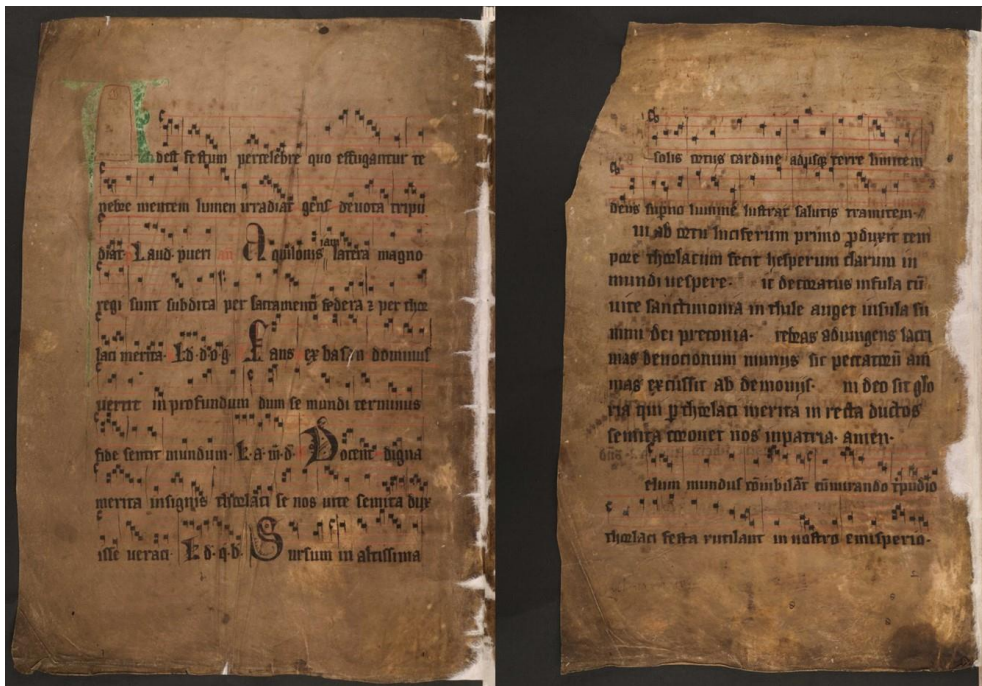 Adest festum percelebre quo effugantur te
nebre mentem lumen irradiat gens devota tripu
diat. Laud. pueri an Aquilonis jam latera magno
regi sunt subdita per sacramenti federa ⁊ per thor
laci merita. Ld. d'o.g. Fans ex basan dominus
vertit in profundum dum se mundi terminus
fide sentit mundum. L. a. m. d. Docent digna
merita insignis thorlaci se nos vite semita dux
isse veraci. L. d. q. d. Sursum in altissima
solis ortus cardine adusque terre limitem
deus superno lumine lustrat salutis tramitem.
in ab ortu luciferum primo produxit tem
pore thorlacum fecit hesperum clarum in
mundi vespere. ic decoratus infula cum
vite sanctimonia in thile auget insula sum
mi dei preconia. adiungens lacri
mas devocionum muniis sic peccatorum am
mas excussit ab demoniis. in deo sit glo
ria qui per thorlaci merita in recta ductos
semita coronet nos in patria. amen.
elum mundus comirando tripudio
thorlaci festa rutilant in nostro emisperio.